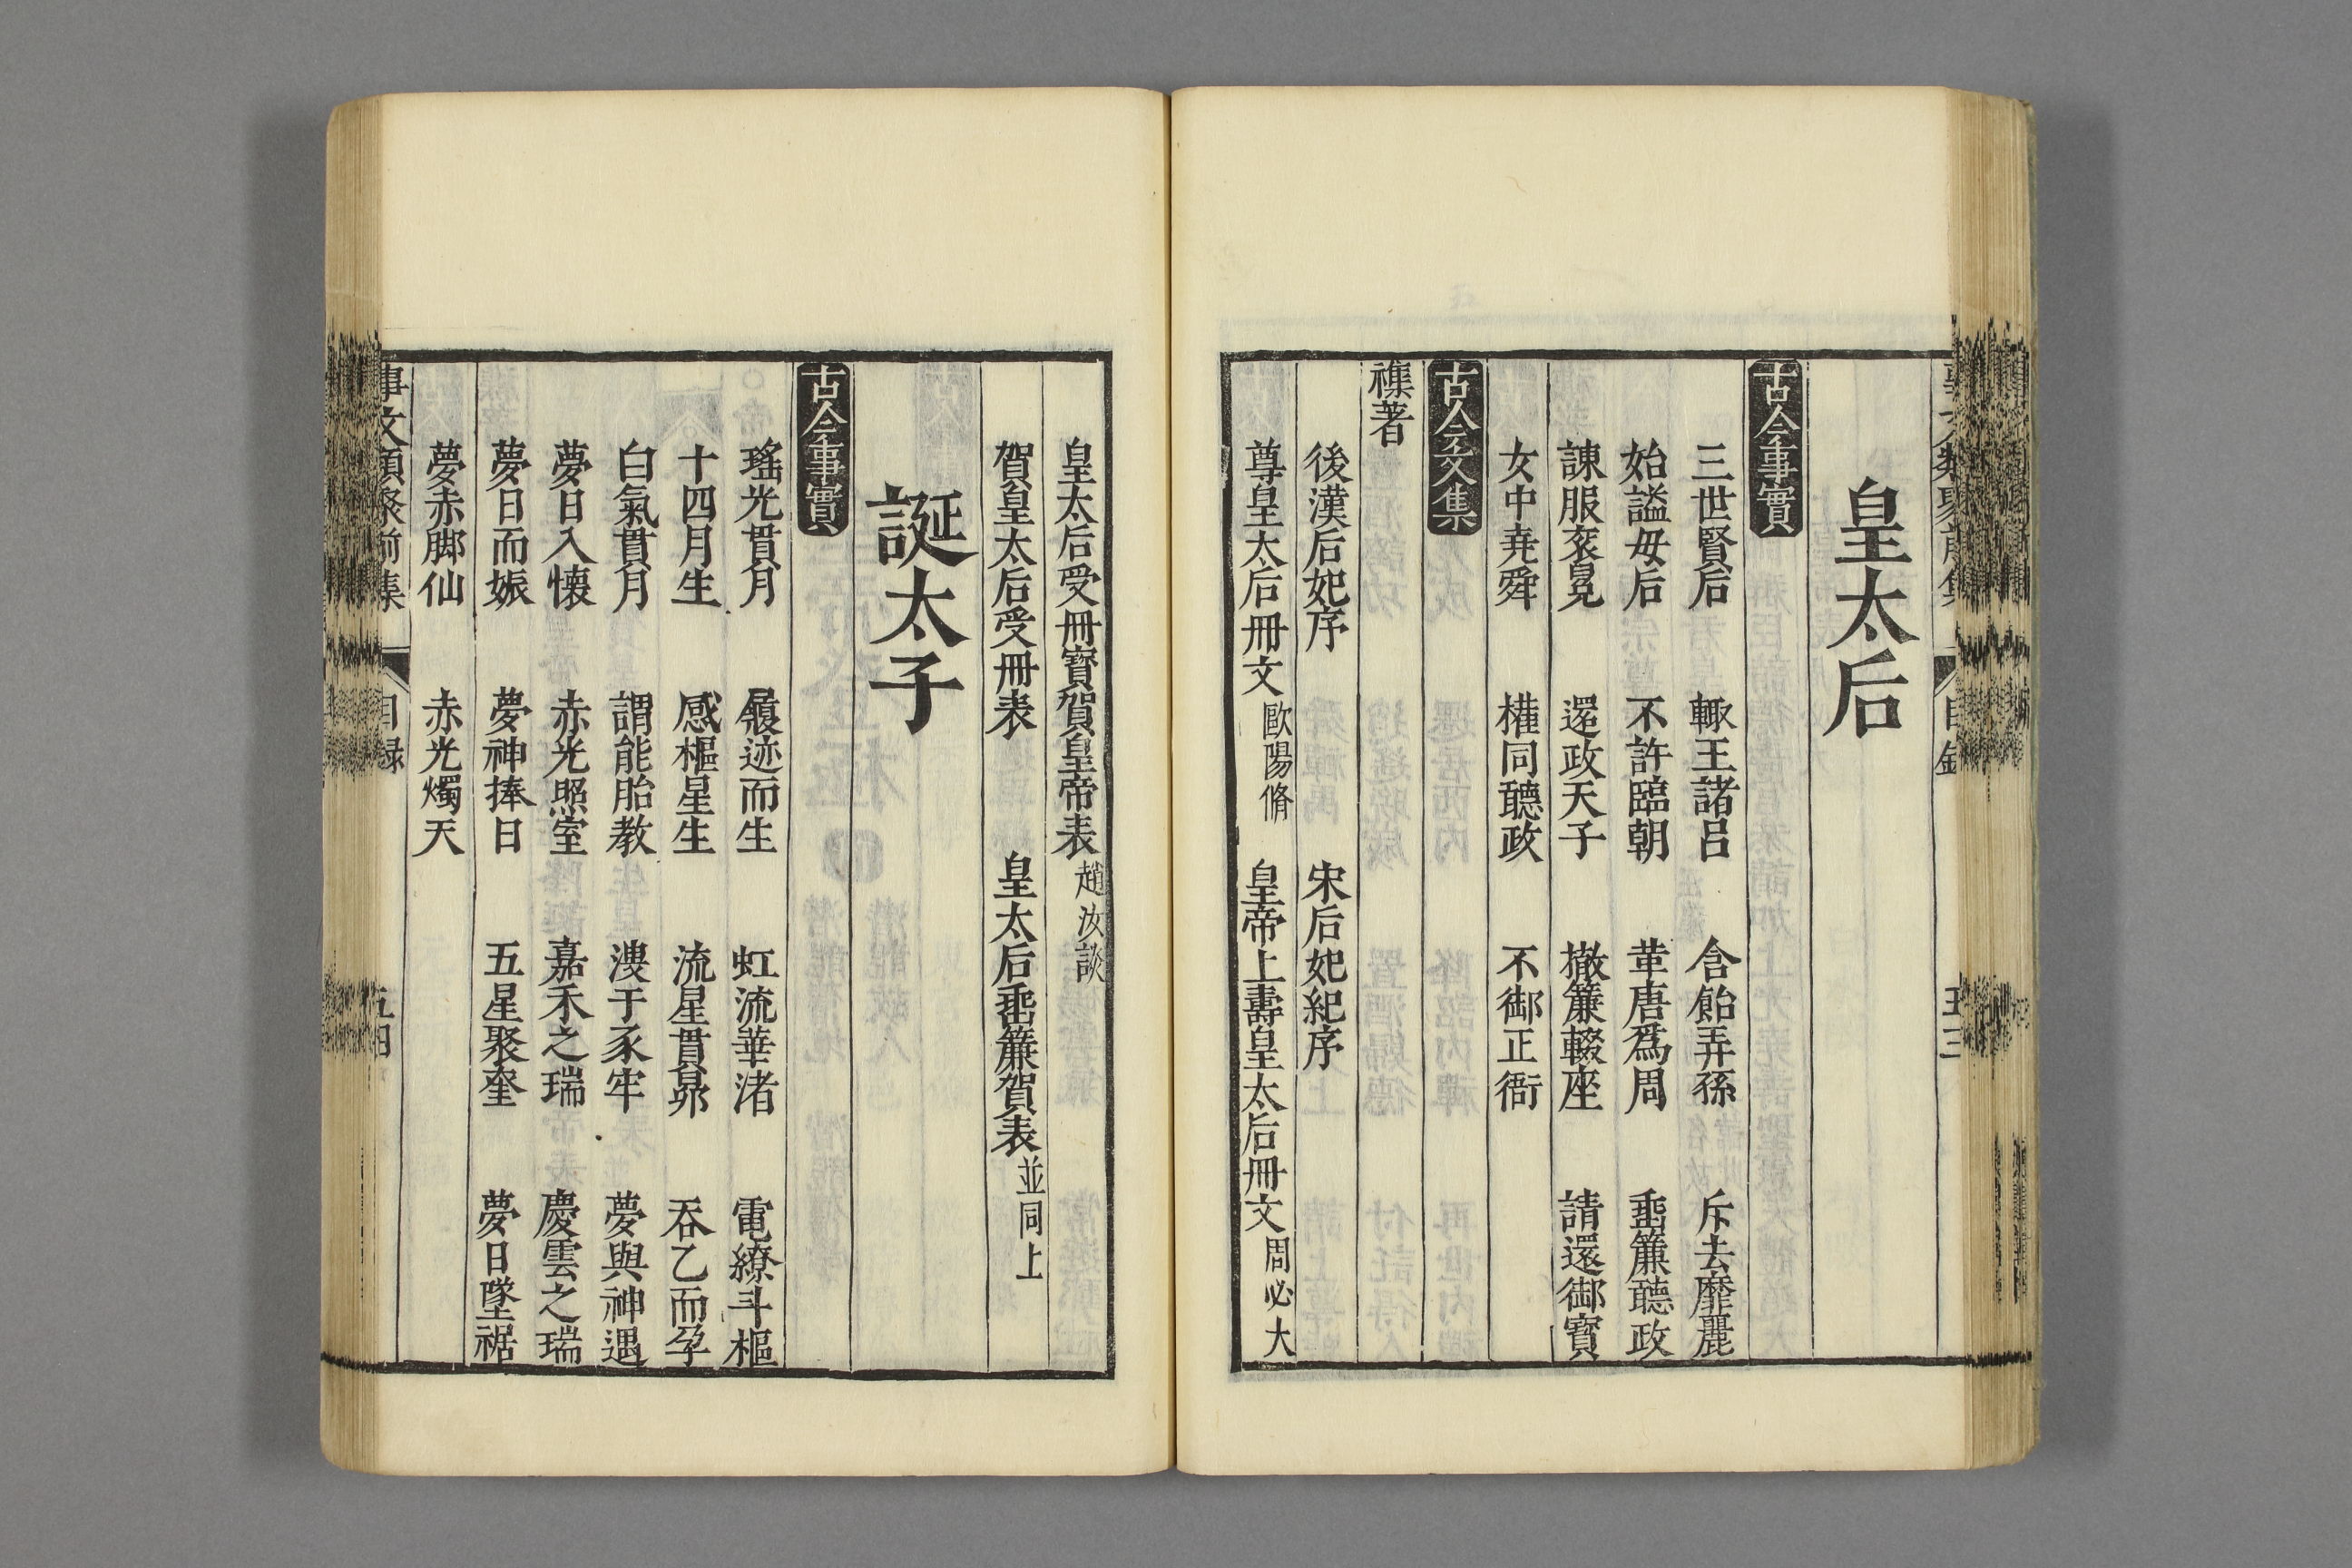 皇太后
古今事實
三世賢后　輙王諸呂　含飴弄孫　斥去靡麗
始謚毋后　不許臨朝　革唐爲周　垂簾聽政
諌服衮冕　還政天子　撤簾輟座　請還御寳
女中堯舜　權同聽政　不御正衙
古今文集
襍著
後漢后妃序　宋后妃紀序
尊皇太后冊文歐陽脩　皇帝上壽皇太后冊文周必大
皇太后受冊寳賀皇帝表趙汝談
賀皇太后受冊表　皇太后垂簾賀表並同上
誕太子
古今事實
瑤光貫月　履迹而生　虹流華渚　電繚斗樞
十四月生　感樞星生　流星貫昴　吞乙而孕
白氣貫月　謂能胎教　溲于豕牢　夢與神遇
夢日入懐　赤光照室　嘉禾之瑞　慶雲之瑞
夢日而娠　夢神捧日　五星聚奎　夢日墜裾
夢赤脚仙　赤光燭天
事文類聚前集　目録　五四